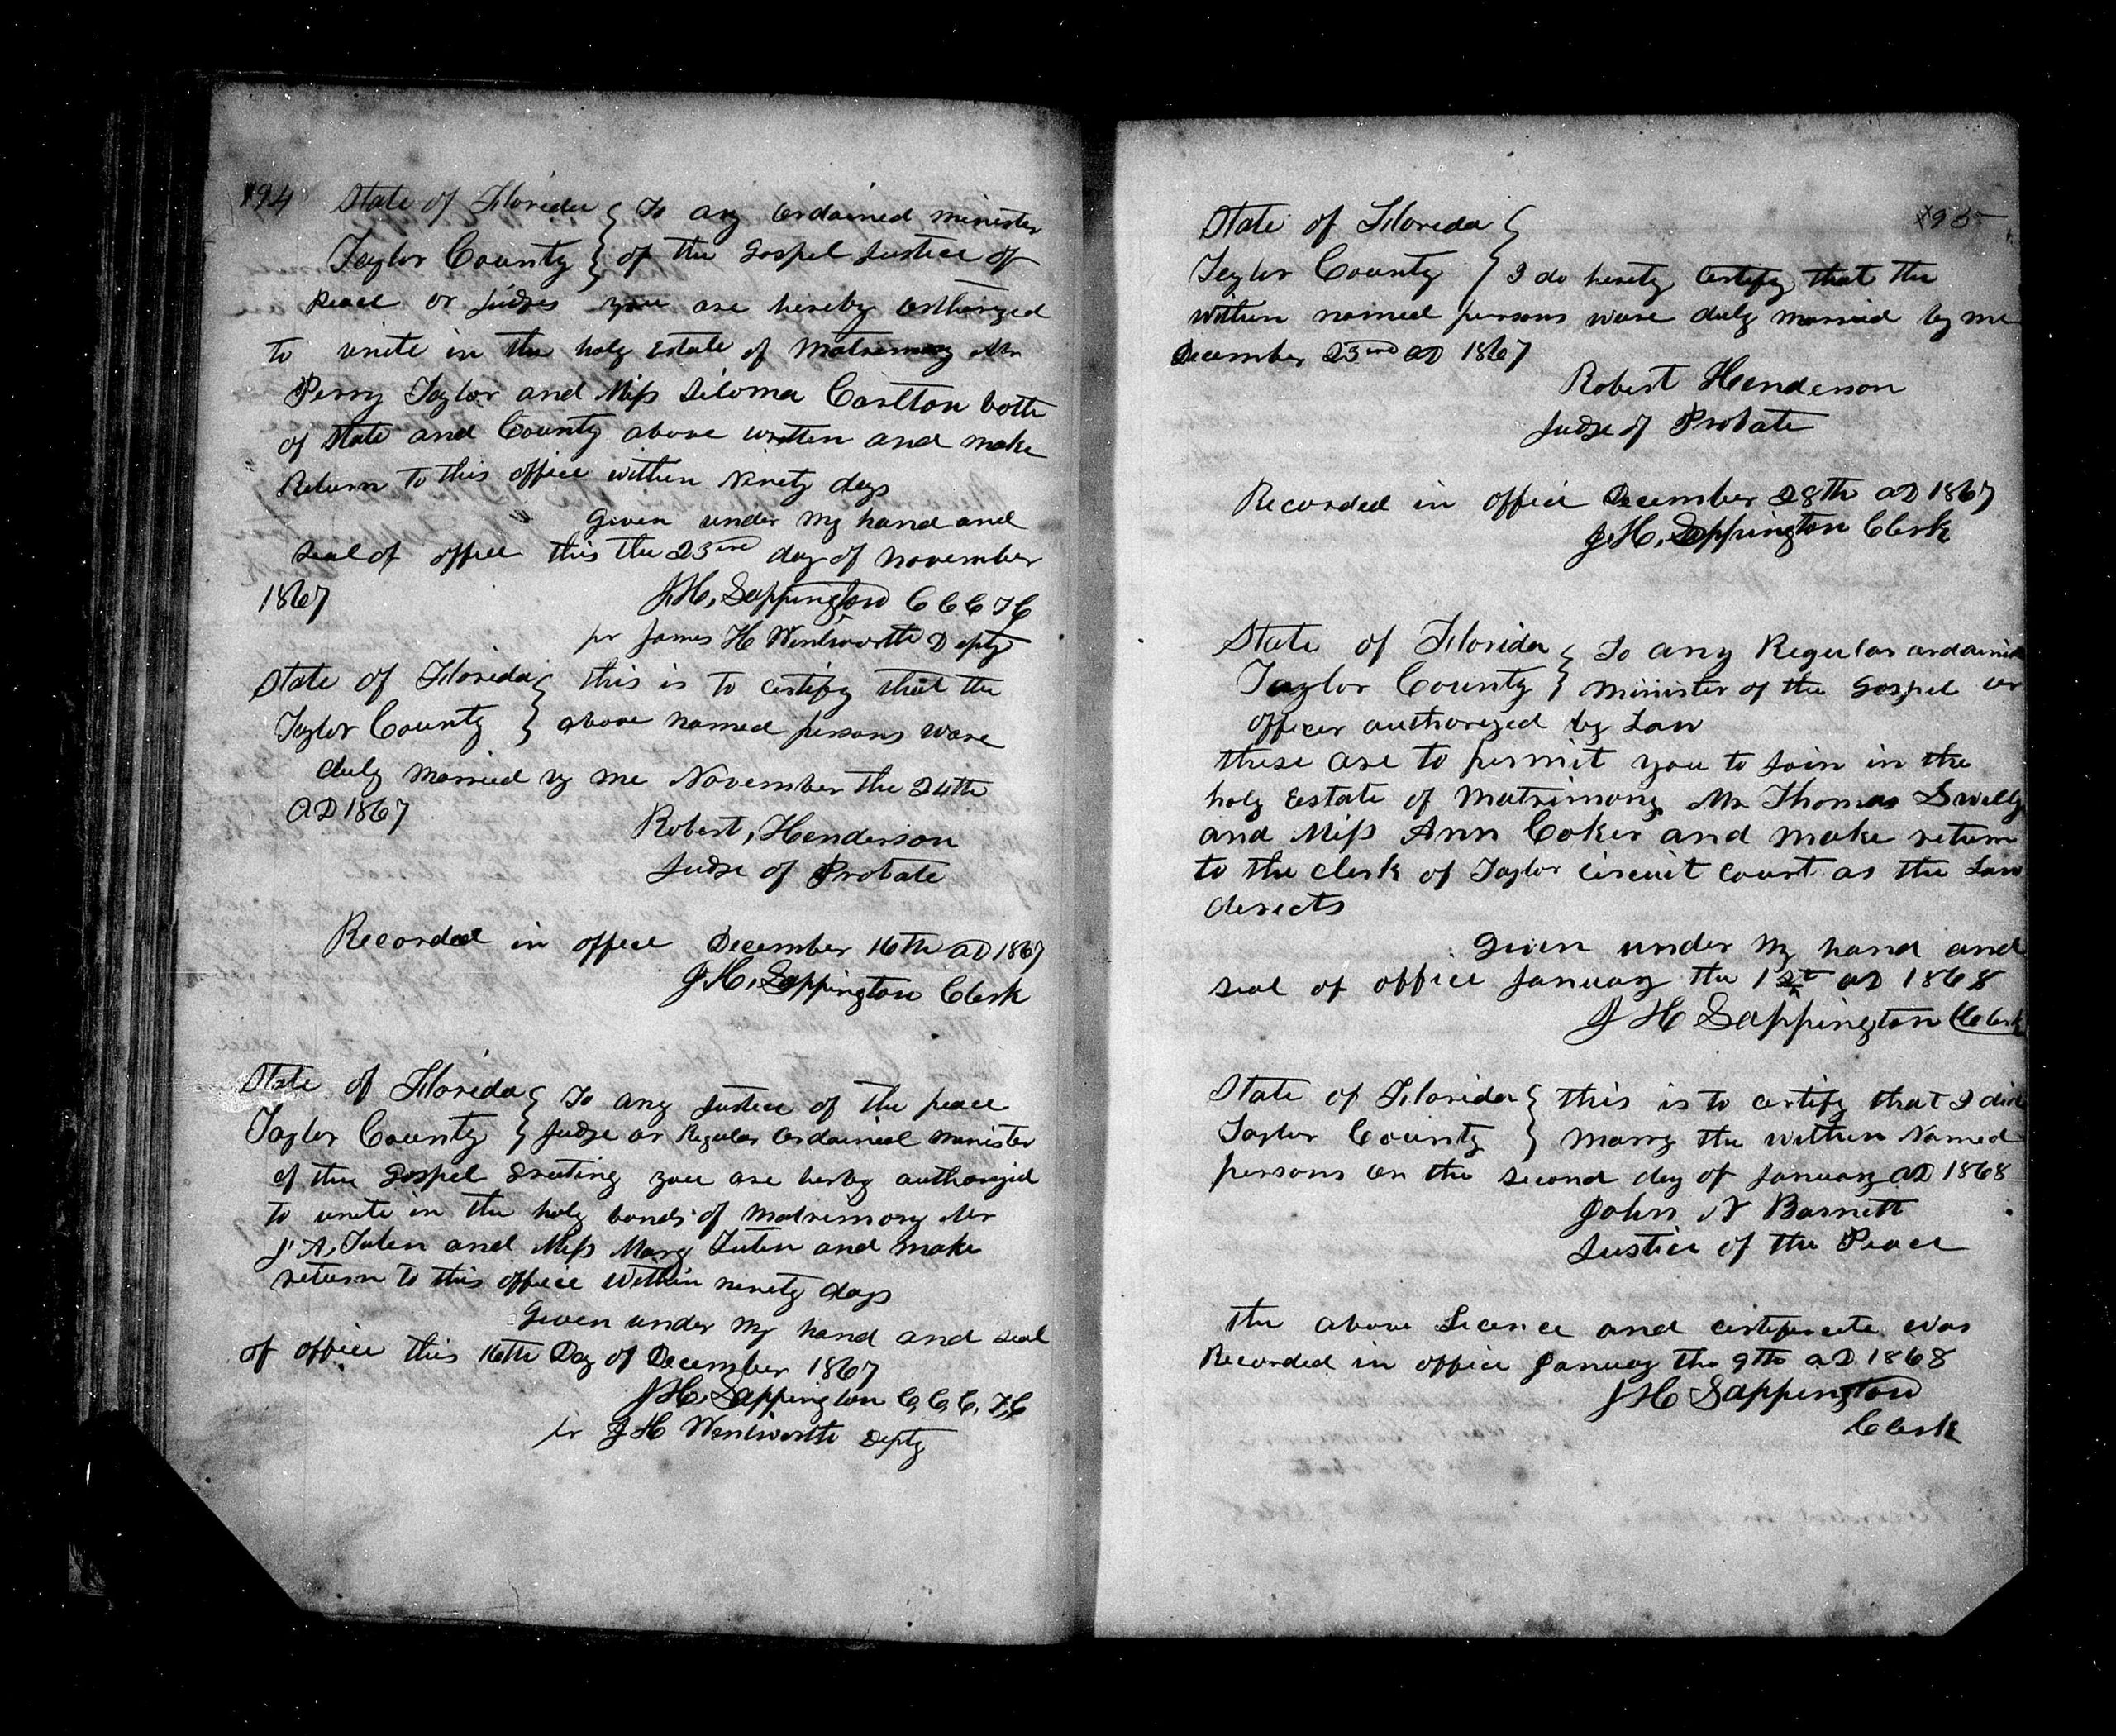 194
State of Florida } To any ordained minister
Taylor County } of the Gospel Justice of
Peace or Judges you are hereby authorized
to unite in the holy Estate of Matrimony Mr
Perry Taylor and Miss Siloma Carlton both
of State and County above written and make
Return to this office within Ninety days
Given under my hand and
seal of office this the 23rd day of November
1867
J.H. Sappington C C C T C
pr James H Wentworth Depty
State of Florida } this is to certify that the
Taylor County } above named persons ware
duly married by me November the 24th
AD 1867
Robert, Henderson
Judge of Probate
Recorded in office December 16th AD 1867
J.H. Sappington Clerk
State of Florida } To any Justice of the peace
Taylor County } Judge or Regular Ordained minister
of the Gospel Greting you are herby authorized
to unite in the holy bonds of matremony Mr
J A, Tuten and Miss Mary Tuten and make
return to this office within ninety days
Given under my hand and seal
of office this 16th Day of December 1867
J.H. Sappington C, C, C, T,C
pr J H Wentworth Depty
195
State of Florida }
Taylor County } I do hereby Certify that the
within named persons ware duly married by me
December 23rd AD 1867
Robert Henderson
Judge of Probate
Recorded in office December 28th AD 1867
J.H. Sappington Clerk
State of Florida } To any Regular ordained
Taylor County } Minister of the Gospel or
officer authorized by Law
these are to permit you to Join in the
holy Estate of Matrimony Mr Thomas Swilly
and Miss Ann Coker and make return
to the clerk of Taylor circuit court as the Law
derects
Given under my hand and
seal of office January the 1st AD 1868
J H Sappington Clerk
State of Florida } this is to certify that I did
Taylor County } marry the within Named
persons on the second day of January AD 1868
John N Barnett
Justice of the Peace
the above Licence and certificate was
Recorded in office January the 9th AD 1868
J H Sappington
Clerk